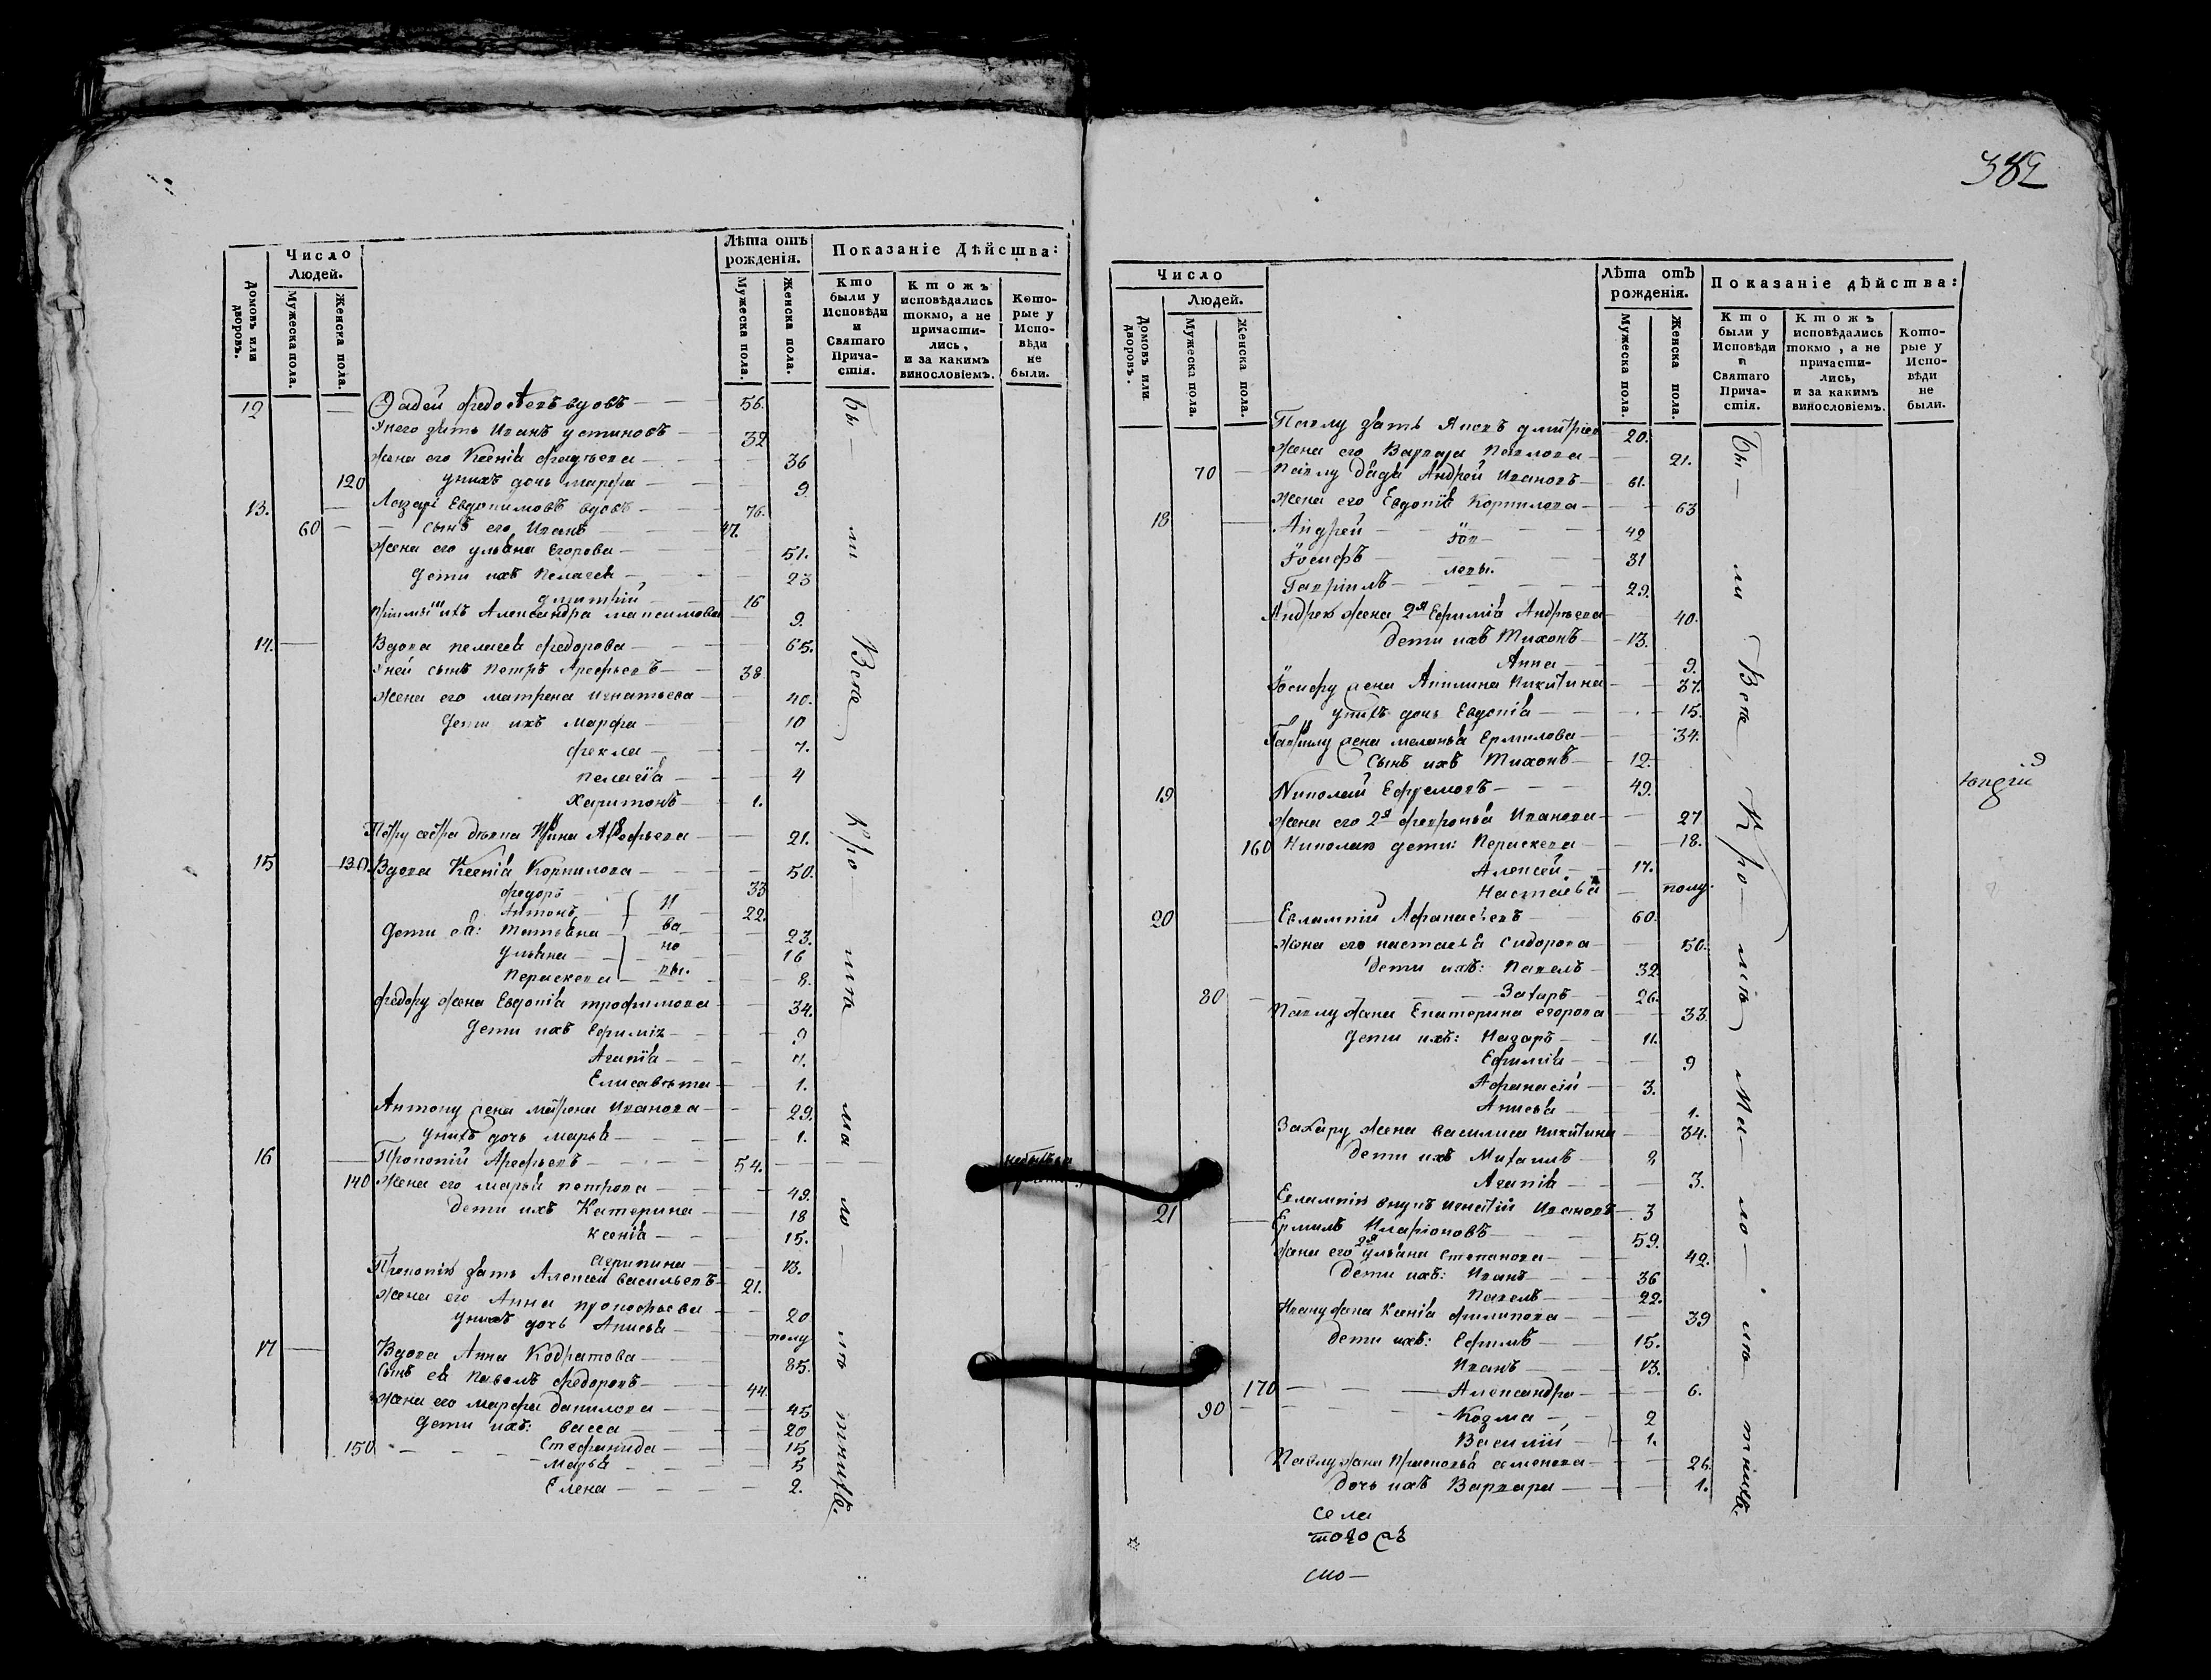 Число Людей.
Лѣта отъ рожденія.
Показаніе Дѣйства:
Домовъ или дворовъ.
Мужеска пола.
Женска пола.
Мужеска пола.
Женска пола.
Кто были у Исповѣди и Святаго Причастія.
Ктожъ исповѣдались токмо, а не причастились, и за какимъ винословіемъ.
Которые у Исповѣди не были.
12 Фадей вдовъ 56.
Унего зять Иванъ Устиновъ 32
Жена его Ксенія Фадѣева 36
120 Унихъ дочь Марфа 9
13. Лазарь Евдокимовъ вдовъ 76.
60 Сынъ его Иванъ 47.
Жена его Ульяна Егорова 51.
Дети ихъ Пелагея 23
Дмитрій 16
ихъ Александра Максимова 9.
14. Вдова Пелагея Федорова 65.
Уней сынъ Петръ Арефьевъ 38
Жена его Матрена Игнатьева 40.
Дети ихъ Марфа 10
Фекла 7.
Пелагія 4
Харитонъ 1.
Петру сестра девка Ирина Арефьева 21.
15 130. Вдова Ксенія Корнилова 50.
Федоръ 33
Антонъ 22.
Дети ея: Татьяна 23.
Ульяна 16
Параскева 8.
Ивановы.
Федору жена Евдокія Трофимова 34.
Дети ихъ Ефимія 9
Агапія 7.
Елисавета 1.
Антону жена Матрона Иванова 29.
Унихъ дочь Марья 1.
16 Прокопій Арефьевъ 54.
140 Жена его Марья Петрова 49.
Дети ихъ Катерина 18
Ксенія 15.
Агрипина 13.
Прокопію зять Алексей Васильевъ 21.
Жена его Анна Прокофьева 20
Унихъ дочь Анисья полу
17 Вдова Анна Кодратова 85.
Сынъ ея Павелъ Федоровъ 44.
Жена его Марфа Данилова 45
Дети ихъ: Васса 20
150 Стефанида 15
Марья 5
Елена 2.
Бы — ли Все, Кро — ме мало — летнихъ.
382
Число Людей.
Лѣта отъ рожденія.
Показаніе дѣйства:
Домовъ или дворовъ.
Мужеска пола.
Женска пола.
Мужеска пола.
Женска пола.
Кто были у Исповѣди и Святаго Причастія.
Ктожъ исповѣдались токмо, а не причастились, и за какимъ винословіемъ.
Которые у Исповѣди не были.
Павлу зять Яковъ Дмитріев 20.
Жена его Варвара Павлова 21.
70 Павлу дядя Андрей Ивановъ 61.
Жена его Евдокія Корнилова 63
18 Андрей 42
Іосифъ 31
Гавріилъ 29.
Іовлевы.
Андрею жена 2я Ефимія Андреева 40.
Дети ихъ Тихонъ 13.
Анна 9.
Іосифу жена Акилина Никитина 37.
Унихъ дочь Евдокія 15.
Гаврилу жена Меланья Ермилова 34.
Сынъ ихъ Тихонъ 12.
19 Николай Ефремовъ 49.
Жена его 2я Февронья Иванова 27
160 Николаю дети: Параскева 18.
Алексей 17.
Настасья полу.
20 Евлампій Афанасьевъ 60.
Жена его Настасья Сидорова 50.
Дети ихъ: Павелъ 32.
80 Захаръ 26.
Павлу жена Екатерина Егорова 33.
Дети ихъ: Назаръ 11.
Ефимія 9
Афанасій 3.
Анисья 1.
Захару жена Василиса Никитина 34.
Дети ихъ Михаилъ 8
Агапія 3.
Евлампію внукъ Игнатій Ивановъ 3
21 Ермилъ Иларіоновъ 59.
Жена его 2я Ульяна Степанова 42.
Дети ихъ: Иванъ 36
Павелъ 22.
Ивану жена Ксенія Филипова 39
Дети ихъ: Ефимъ 15.
Иванъ 13.
170 Александра 6.
90 Козма 2
Василій 1.
Павлу жена Прасковья Семенова 26.
Дочь ихъ Варвара 1.
Бы — ли Все, Кро — ме Мало — летнихъ.
села
тогожъ